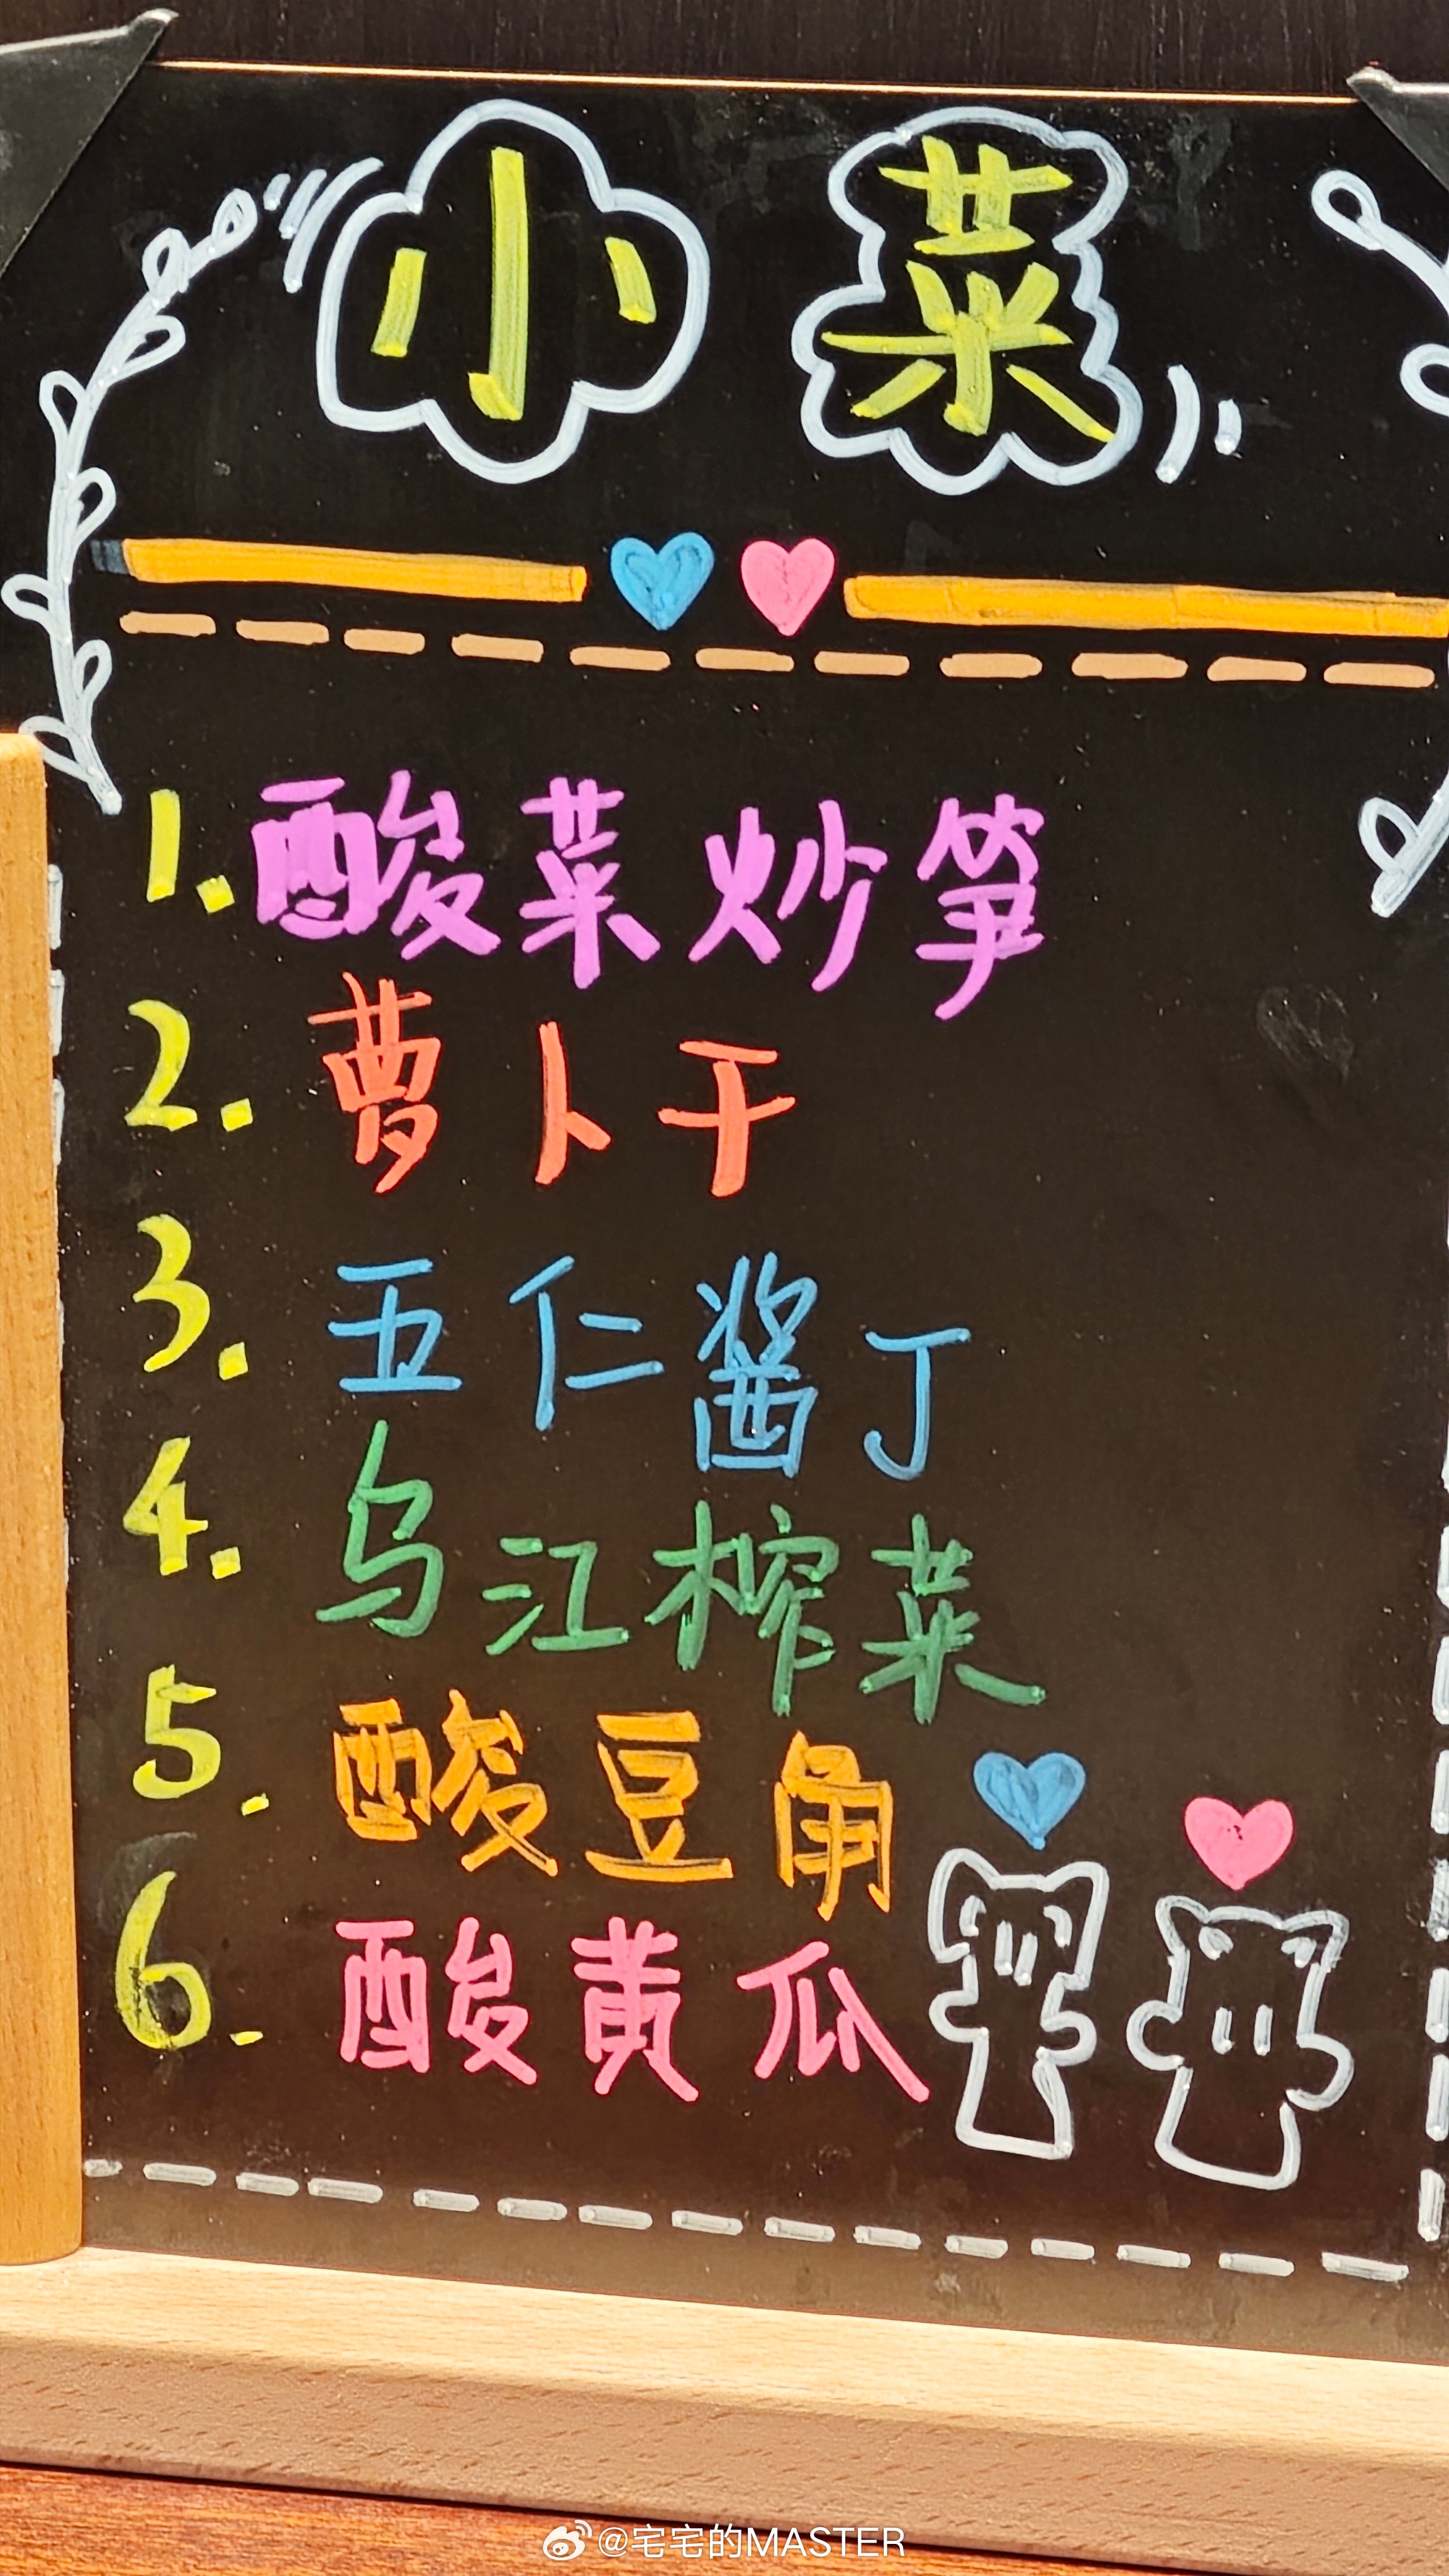 小菜
1.酸菜炒笋
2.萝卜干
3.五仁酱丁
4.乌江榨菜
5.酸豆角
6.酸黄瓜
@宅宅的MASTER